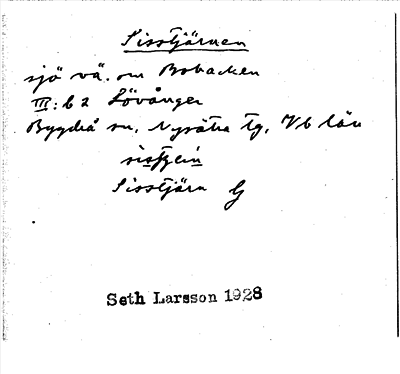 Sisstjärnen
sjö vä. om Bobacken
III: b 2 Lövånger
Bygdeå sn, Nysätra tg, Vb län
Sisstjärn G
Seth Larsson 1928